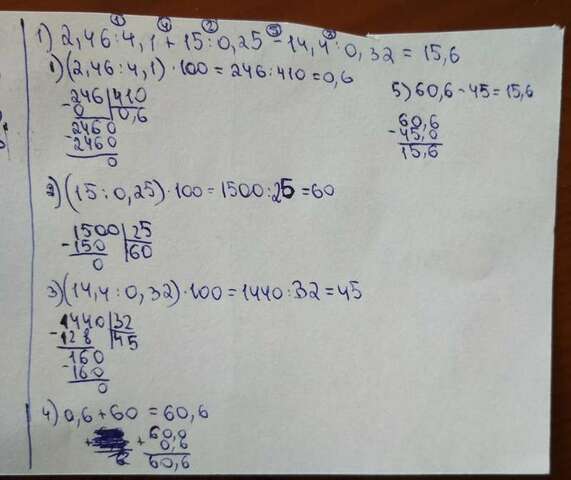 ① ④ ② ⑤ ③
1) 2,46:4,1+15:0,25-14,4:0,32=15,6
1) (2,46:4,1)·100=246:410=0,6
246|410
-0 |0,6
2460
-2460
0
2) (15:0,25)·100=1500:25=60
1500|25
-150 |60
0
3) (14,4:0,32)·100=1440:32=45
1440|32
-128 |45
160
-160
0
4) 0,6+60=60,6
+60,0
0,6
60,6
5) 60,6-45=15,6
60,6
-45,0
15,6